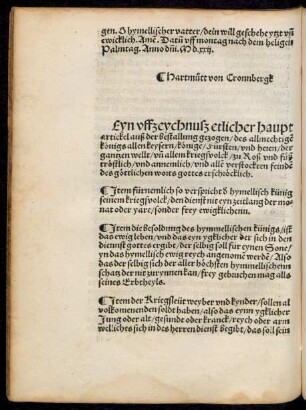 gen. O hymellischer vatter/ dein will geschehe yetzt vñ
ewicklich. Amē. Datū vff montag nach dem heligen
Palmtag. Anno dñi. M d. xxij.
¶ Hartmütt von Cronnbergk
Eyn vffzeychnusz etlicher haupt
artickel auß der bestallung gezogen/ des allmechtigē
königs allen keysern/ könige/ Fürsten/ vnd heren/ der
gantzen wellt/ vñ allem kriegsvolck/ zu Roß vnd füß
tröstlich/ vnd annemlich/ vnd alle verstockten feinde
des göttlichen worts gottes erschöcklich.
¶ Item fürnemlich so verspricht ð hymelisch künig
seinem kriegßvolck/ den dienst nit ein zeitlang der mo
nat oder yare/ sonder frey ewigklichenn.
¶ Item die besoldung des hymmelischen künigs/ ist
das ewig leben/ vnd das eyn ygklicher der sich in den
diennst gottes ergibt/ der selbig soll für eynen Sone/
yn das hymmelisch ewig reych angenomē werdē/ Also
das der selbig sich der aller höchsten hymmelischenn
schatz der nit zurynnen kan/ frey gebrauchen mag als
seines Erbtheyls.
¶ Item der Kriegsleüt weyber vnd kynder/ sollen al
volkomenenden soldt haben/ also das eynn ygklicher
Jung oder alt/ gesunde oder kranck/ reych oder arm
welliches sich in des herren dienst begibt/ das soll sein